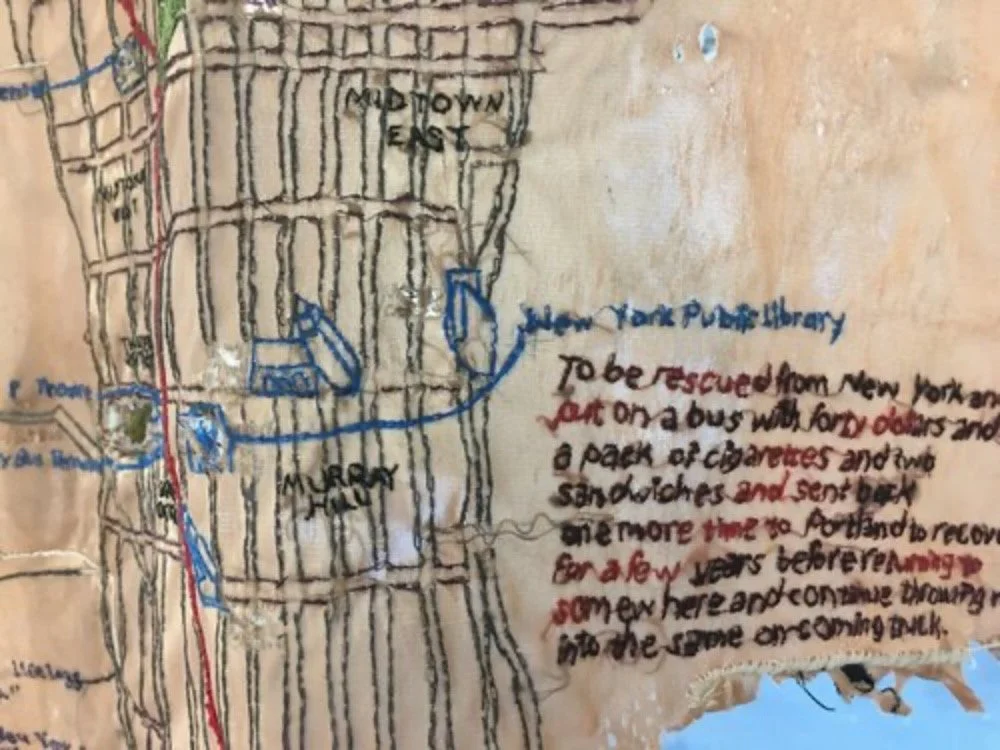 MIDTOWN
EAST
New York Public Library
To be rescued from New York an
put on a bus with forty dollars and
a pack of cigarettes and two
sandwiches and sent back
one more time to Portland to recov
for a few years before returning to
somewhere and continue throwing
into the same on-coming truck.
MURRAY
HILL